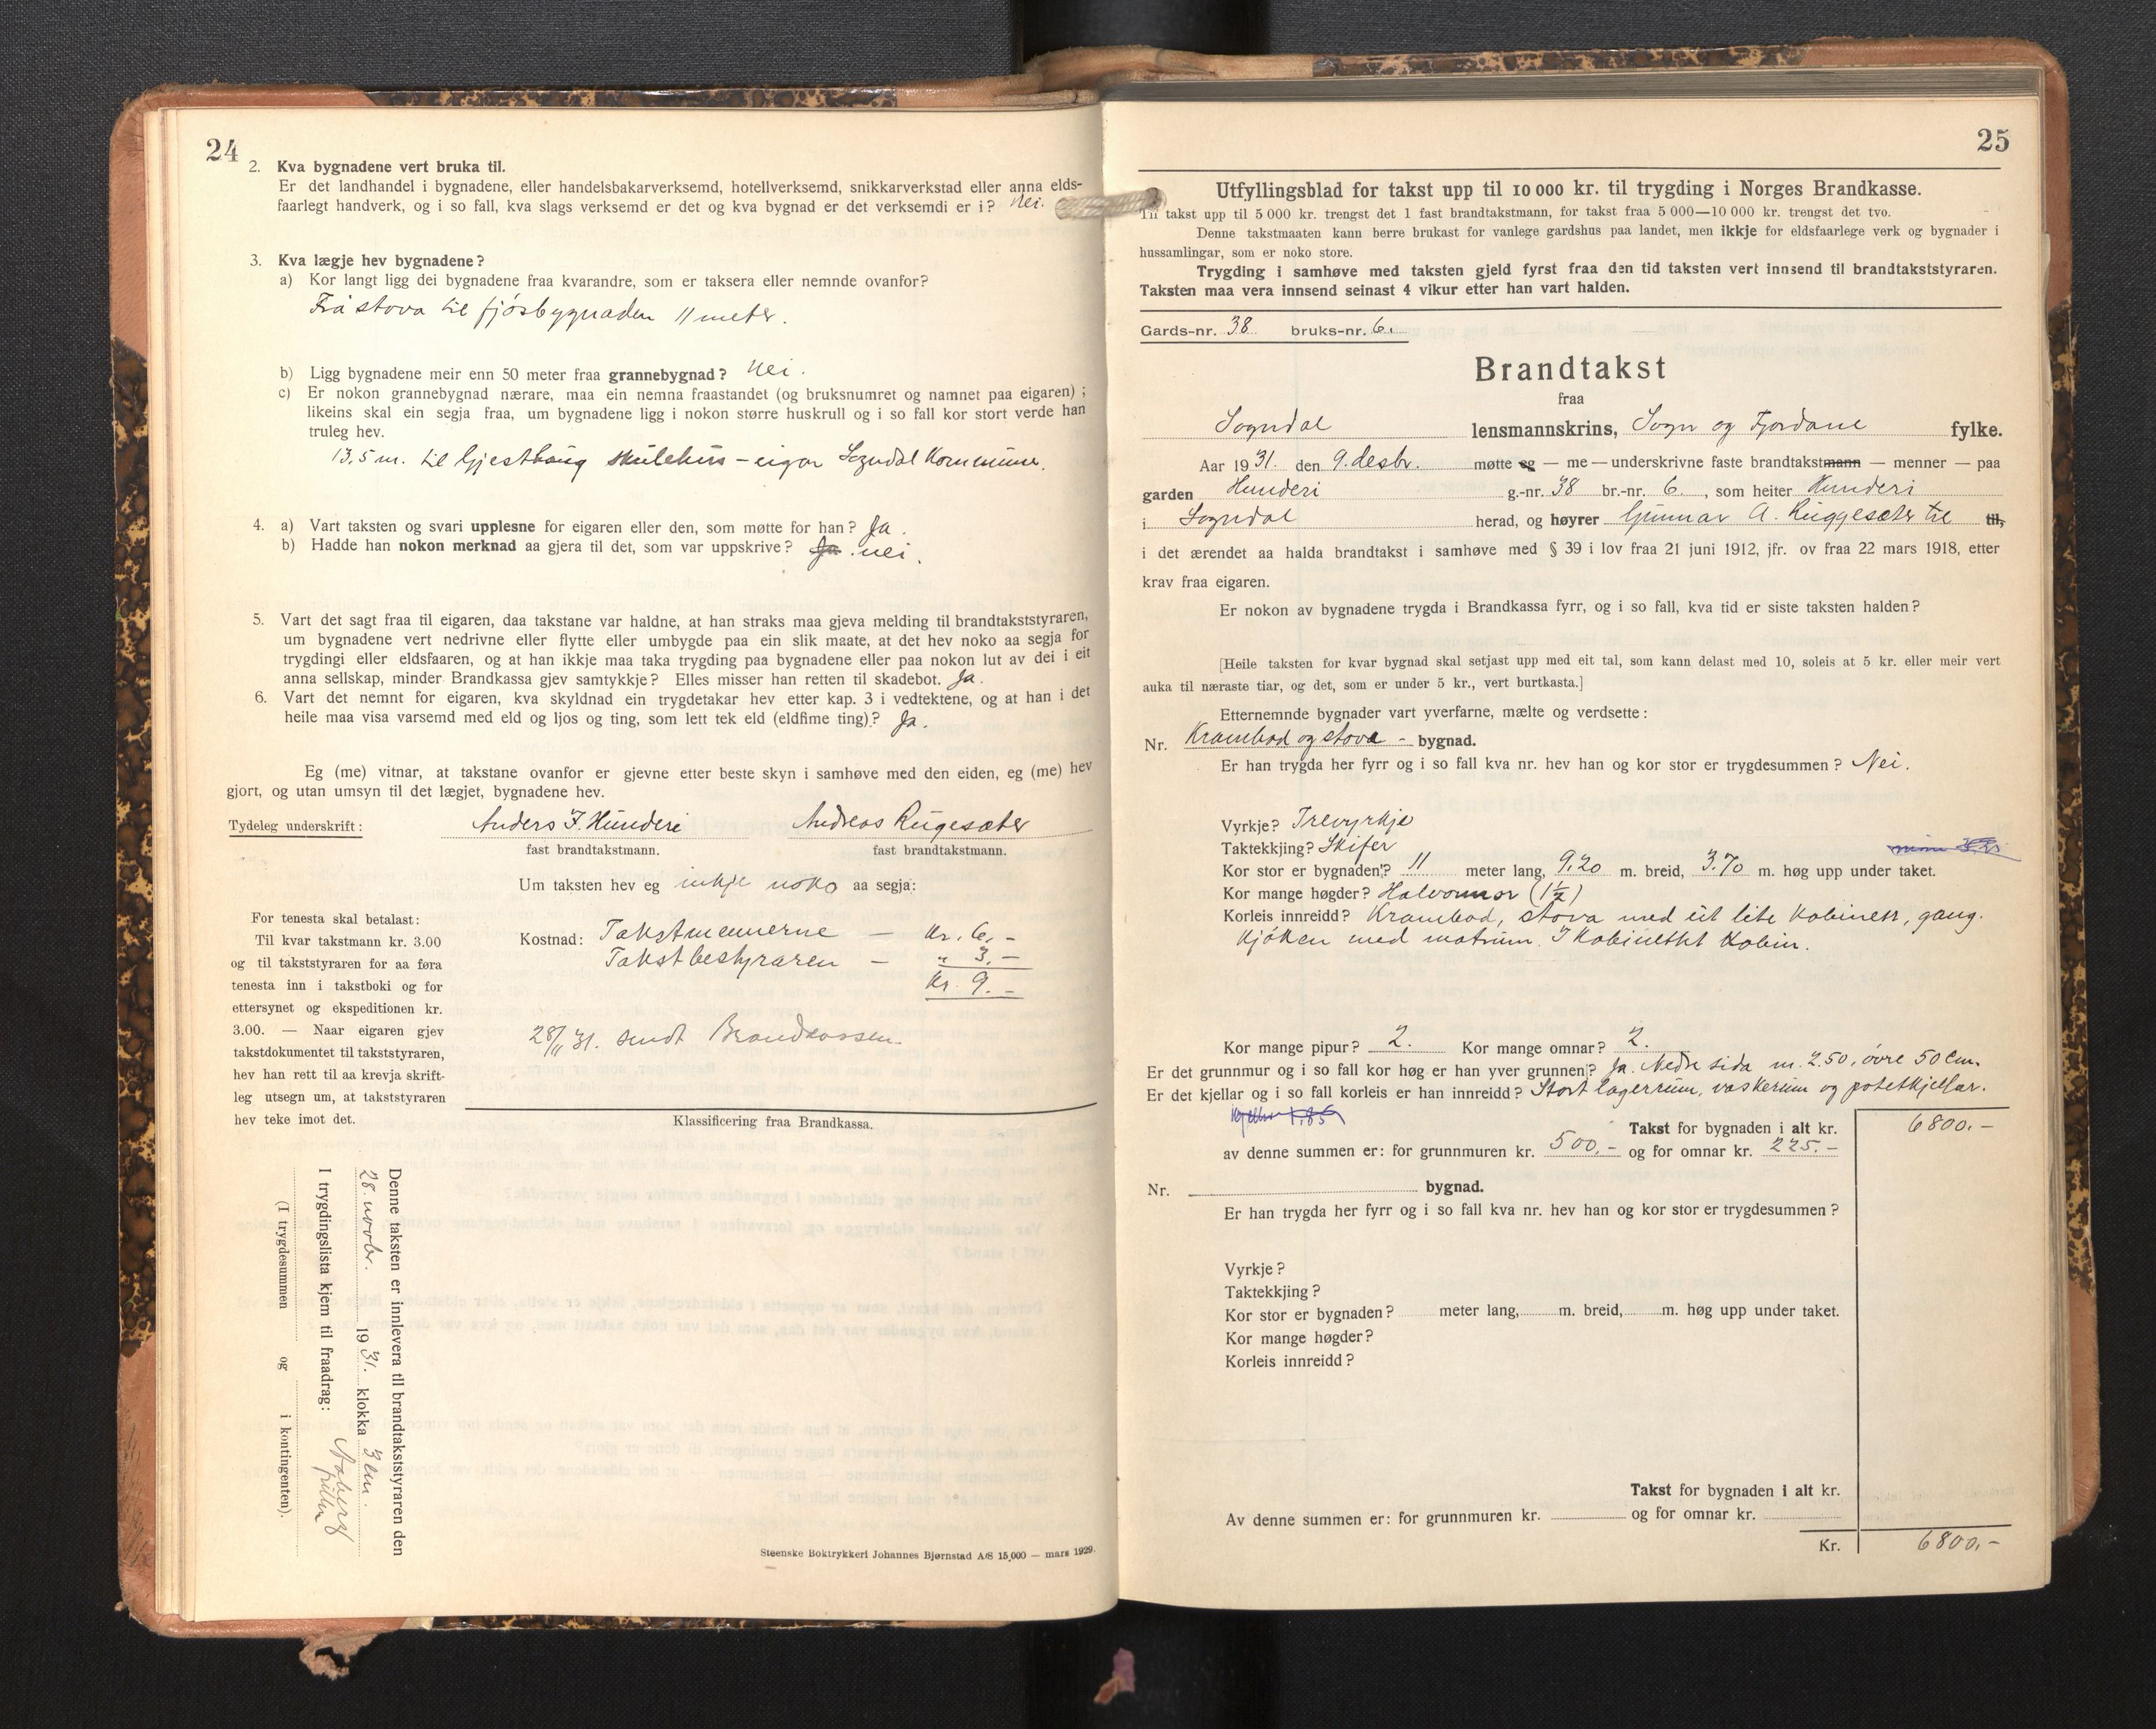 24
2. Kva bygnadene vert bruka til.
Er det landhandel i bygnadene, eller handelsbakarverksemd, hotellverksemd, snikkarverkstad eller anna elds-
faarlegt handverk, og i so fall, kva slags verksemd er det og kva bygnad er det verksemdi er i? Nei.
3. Kva lægje hev bygnadene?
a) Kor langt ligg dei bygnadene fraa kvarandre, som er taksera eller nemnde ovanfor?
Frå stova til fjósbygnaden 11 meter.
b) Ligg bygnadene meir enn 50 meter fraa grannebygnad? Nei.
c) Er nokon grannebygnad nærare, maa ein nemna fraastandet (og bruksnumret og namnet paa eigaren);
likeins skal ein segja fraa, um bygnadene ligg i nokon større huskrull og i so fall kor stort verde han
truleg hev.
13,5 m. til Gjesthaug skulehus – eigar Sogndal Kommune.
4. a) Vart taksten og svari upplesne for eigaren eller den, som møtte for han? Ja.
b) Hadde han nokon merknad aa gjera til det, som var uppskrive? Ja. nei.
5. Vart det sagt fraa til eigaren, daa takstane var haldne, at han straks maa gjeva melding til brandtakststyraren,
um bygnadene vert nedrivne eller flytte eller umbygde paa ein slik maate, at det hev noko aa segja for
trygdingi eller eldsfaaren, og at han ikkje maa taka trygding paa bygnadene eller paa nokon lut av dei i eit
anna sellskap, minder Brandkassa gjev samtykkje? Elles misser han retten til skadebot. Ja.
6. Vart det nemnt for eigaren, kva skyldnad ein trygdetakar hev etter kap. 3 i vedtektene, og at han i det
heile maa visa varsemd med eld og ljos og ting, som lett tek eld (eldfime ting)? Ja.
Eg (me) vitnar, at takstane ovanfor er gjevne etter beste skyn i samhøve med den eiden, eg (me) hev
gjort, og utan umsyn til det lægjet, bygnadene hev.
Tydeleg underskrift: Anders I. Hunderi Andreas Rugesæter
fast brandtakstmann. fast brandtakstmann.
Um taksten hev eg inkje noko aa segja:
For tenesta skal betalast:
Til kvar takstmann kr. 3.00
og til takststyraren for aa føra
tenesta inn i takstboki og for
ettersynet og ekspeditionen kr.
3.00. — Naar eigaren gjev
takstdokumentet til takststyraren,
hev han rett til aa krevja skrift-
leg utsegn um, at takststyraren
hev teke imot det.
Kostnad: Takstmennerne — Kr. 6,-
Takstbestyraren — " 3,-
Kr. 9.-
28/11 31. sendt Brandkassen.
Klassificering fraa Brandkassa.
Denne taksten er innlevera til brandtakststyraren den
28. novbr. 1931. klokka 3 em.
I trygdingslista kjem til fraadrag:
(I trygdesummen og i kontingenten).
Steenske Boktrykkeri Johannes Bjørnstad A/S 15,000 — mars 1929.
25
Utfyllingsblad for takst upp til 10 000 kr. til trygding i Norges Brandkasse.
Til takst upp til 5 000 kr. trengst det 1 fast brandtakstmann, for takst fraa 5 000—10 000 kr. trengst det tvo.
Denne takstmaaten kann berre brukast for vanlege gardshus paa landet, men ikkje for eldsfaarlege verk og bygnader i
hussamlingar, som er noko store.
Trygding i samhøve med taksten gjeld fyrst fraa den tid taksten vert innsend til brandtakststyraren.
Taksten maa vera innsend seinast 4 vikur etter han vart halden.
Gards-nr. 38 bruks-nr. 6.
Brandtakst
fraa
Sogndal lensmannskrins, Sogn og Fjordane fylke.
Aar 1931. den 9. desbr. møtte eg — me — underskrivne faste brandtakstmann — menner — paa
garden Hunderi g.-nr. 38 br.-nr. 6. , som heiter Hunderi
i Sogndal herad, og høyrer Gunnar A. Ruggesæter til til,
i det ærendet aa halda brandtakst i samhøve med § 39 i lov fraa 21 juni 1912, jfr. ov fraa 22 mars 1918, etter
krav fraa eigaren.
Er nokon av bygnadene trygda i Brandkassa fyrr, og i so fall, kva tid er siste taksten halden?
[Heile taksten for kvar bygnad skal setjast upp med eit tal, som kann delast med 10, soleis at 5 kr. eller meir vert
auka til næraste tiar, og det, som er under 5 kr., vert burtkasta.]
Etternemnde bygnader vart yverfarne, mælte og verdsette:
Nr. Krambod og stova - bygnad.
Er han trygda her fyrr og i so fall kva nr. hev han og kor stor er trygdesummen? Nei.
Vyrkje? Trevyrkje
Taktekkjing? Skifer
Kor stor er bygnaden? 11 meter lang, 9,20 m. breid, 3.70 m. høg upp under taket.
Kor mange høgder? Halvonnor (1½)
Korleis innreidd? Krambod, stova med eit lite kabinett, gang.
Kjøken med matrum. I kabinettet kabin.
Kor mange pipur? 2. Kor mange omnar? 2.
Er det grunnmur og i so fall kor høg er han yver grunnen? Ja. Nedre sida m. 2.50, óvre 50 cm.
Er det kjellar og i so fall korleis er han innreidd? Stort lagerrum, vaskerum og potetkjellar.
Takst for bygnaden i alt kr. 6800.-
av denne summen er: for grunnmuren kr. 500,- og for omnar kr. 225.-
Nr. bygnad.
Er han trygda her fyrr og i so fall kva nr. hev han og kor stor er trygdesummen?
Vyrkje?
Taktekkjing?
Kor stor er bygnaden? meter lang, m. breid, m. høg upp under taket.
Kor mange høgder?
Korleis innreidd?
Takst for bygnaden i alt kr.
Av denne summen er: for grunnmuren kr. og for omnar kr.
Kr. 6800,-